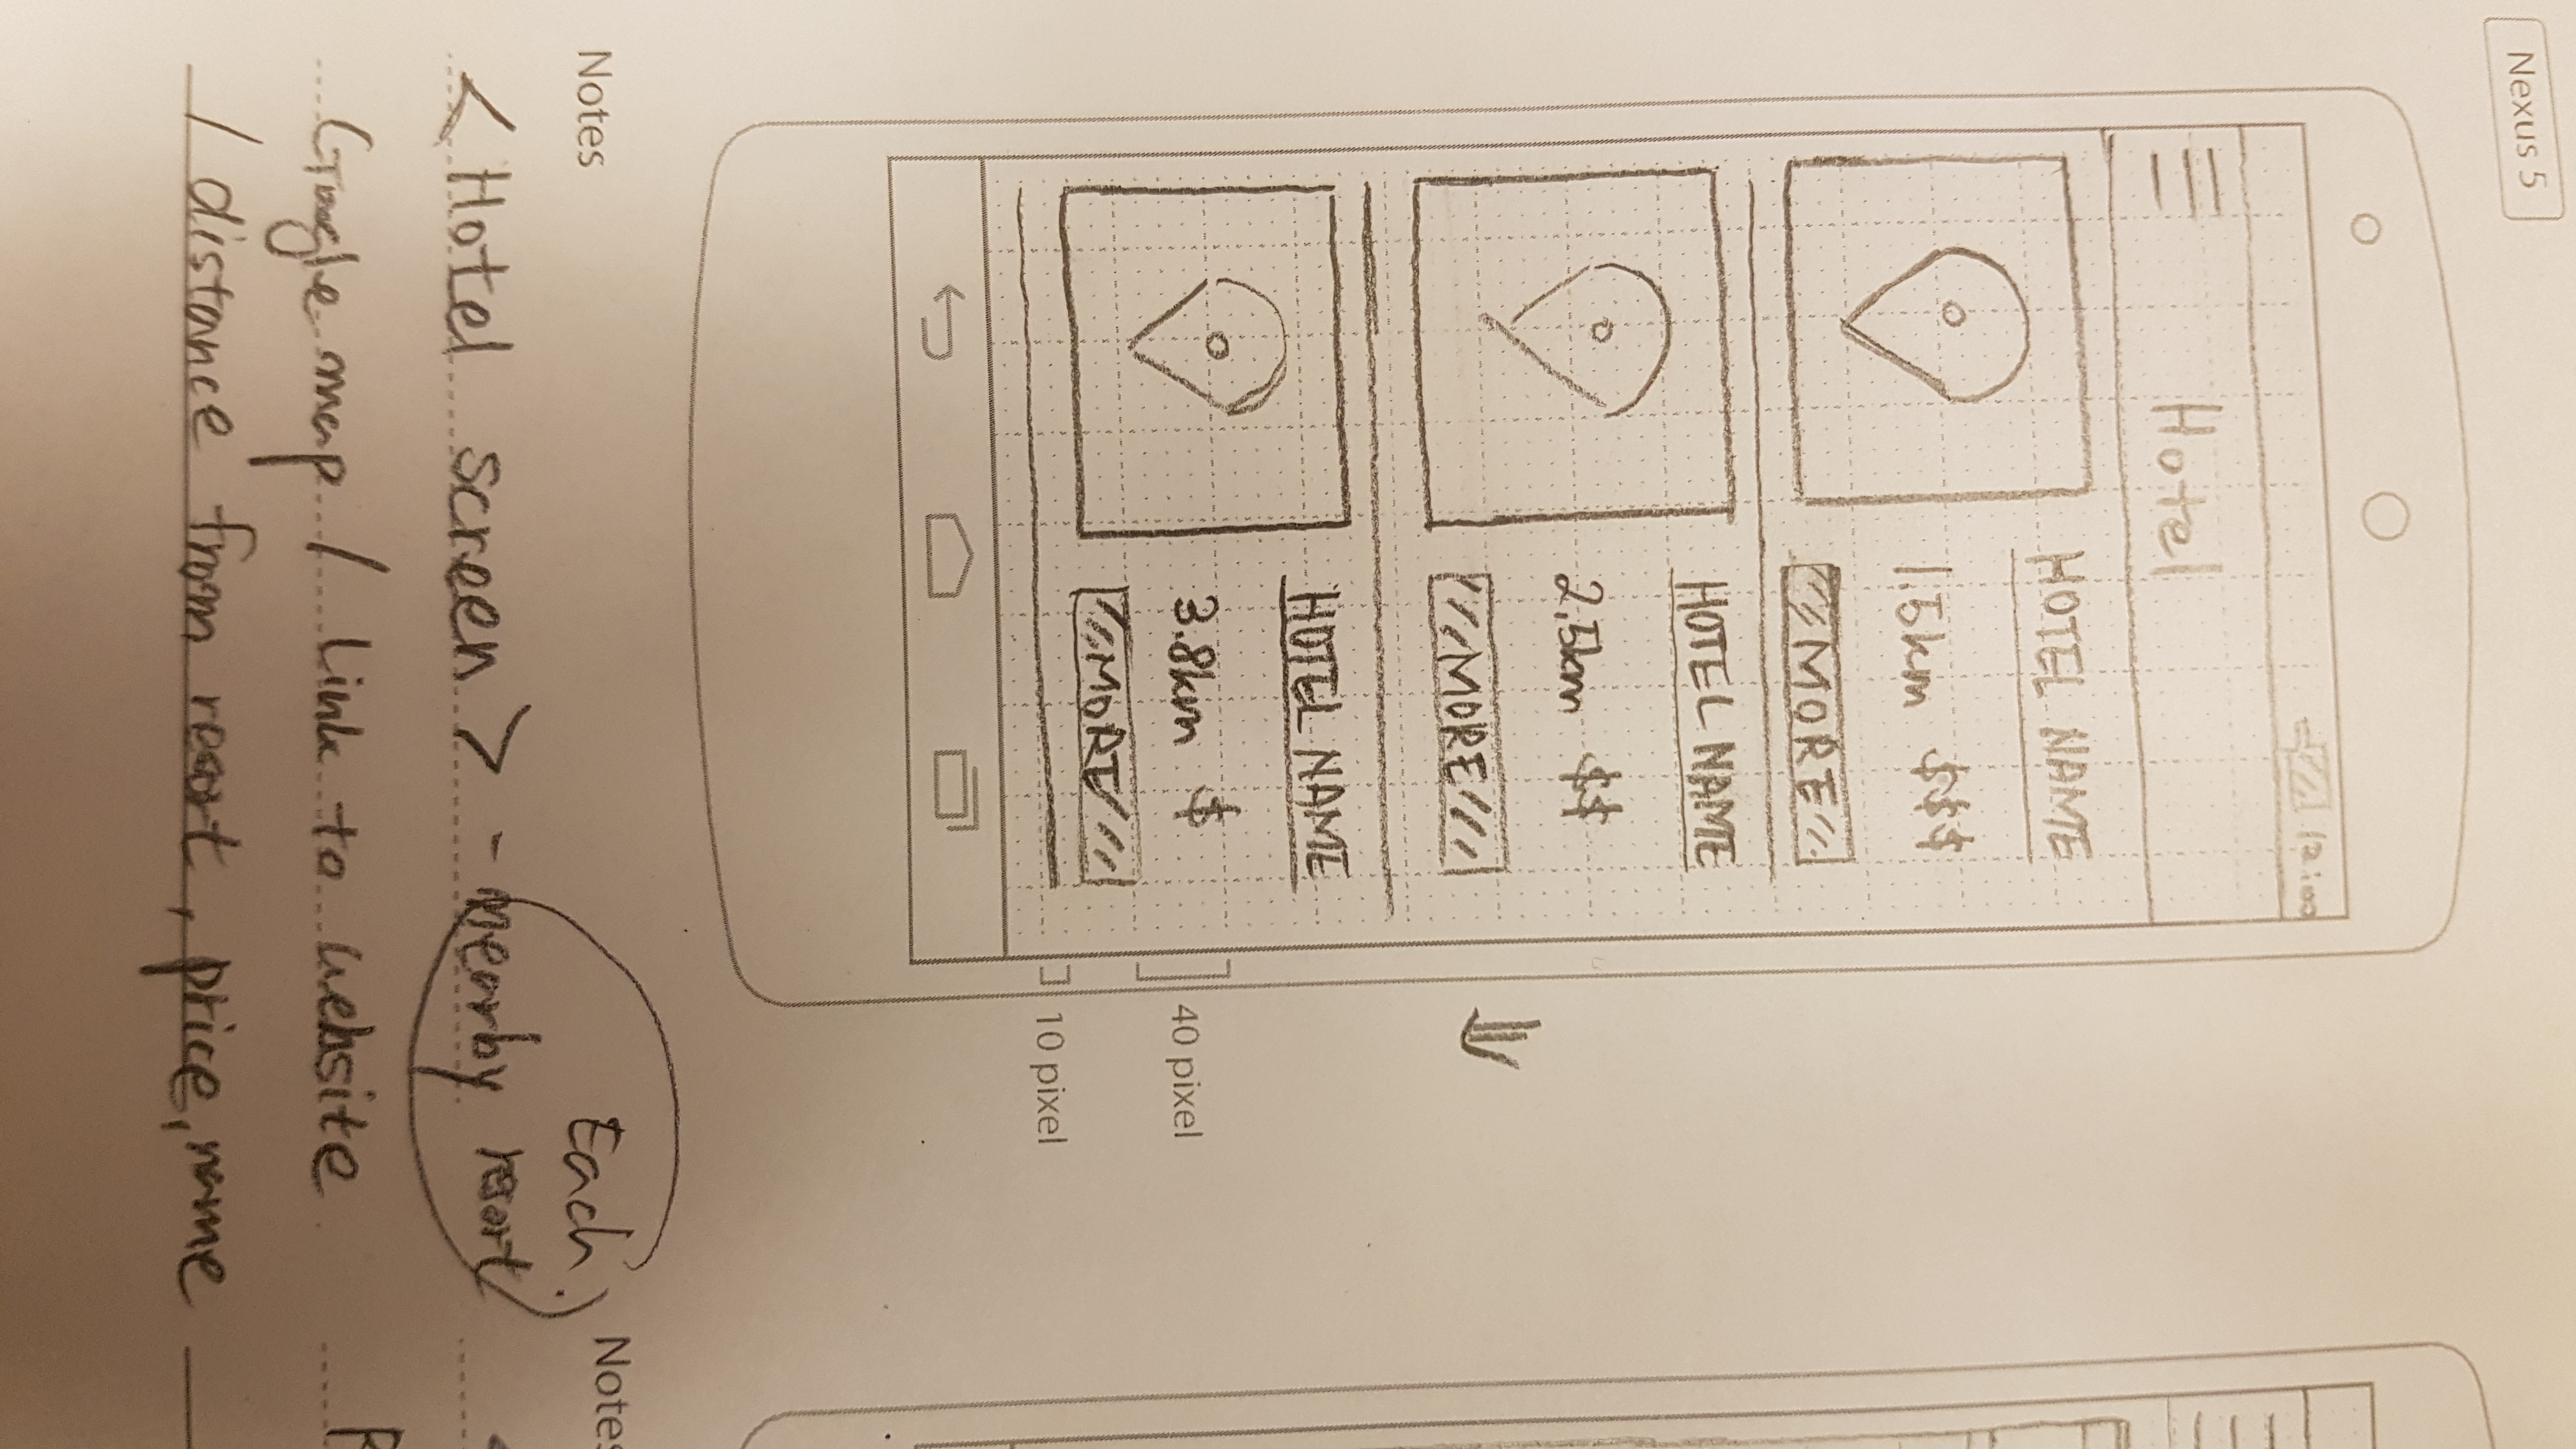 Nexus 5
12:00
Hotel
HOTEL NAME
1.5km $$$
MORE
HOTEL NAME
2.5km $$
MORE
HOTEL NAME
3.8km $
MORE
40 pixel
10 pixel
Notes
Each.
<Hotel screen> - nearby resort
Google map / Link to website
/ distance from resort, price, name
Notes